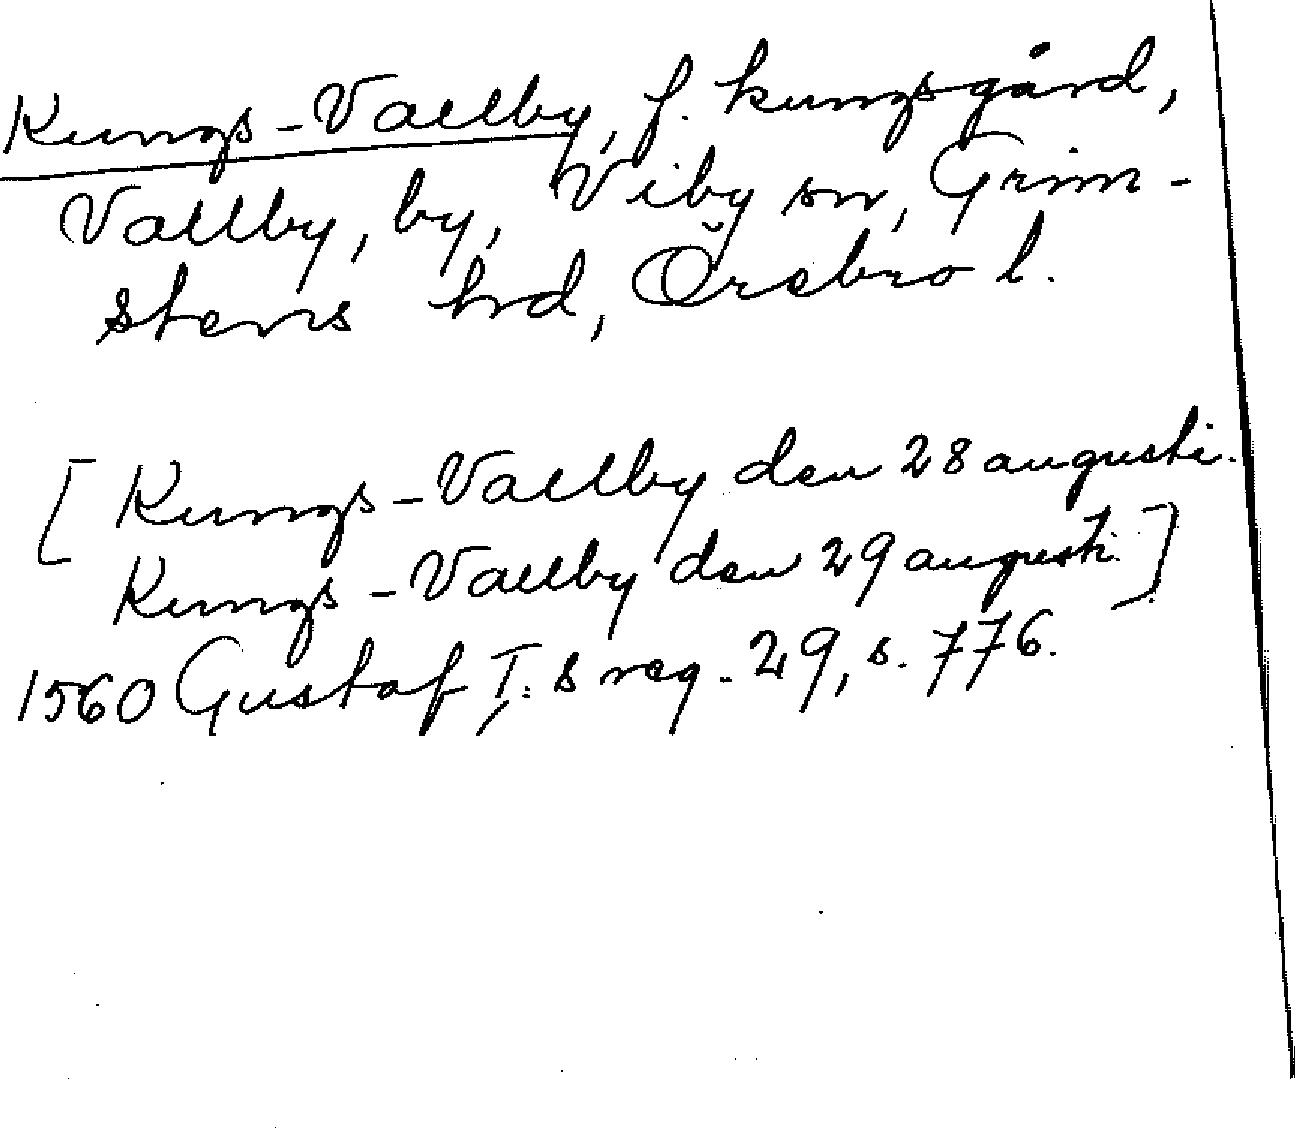 Kungs-Vallby, f. kungsgård,
Vallby, by, Viby sn, Grim-
stens hd, Örebro l.
[ Kungs-Vallby den 28 augusti.
Kungs-Vallby den 29 augusti. ]
1560 Gustaf I:s reg. 29, s. 776.